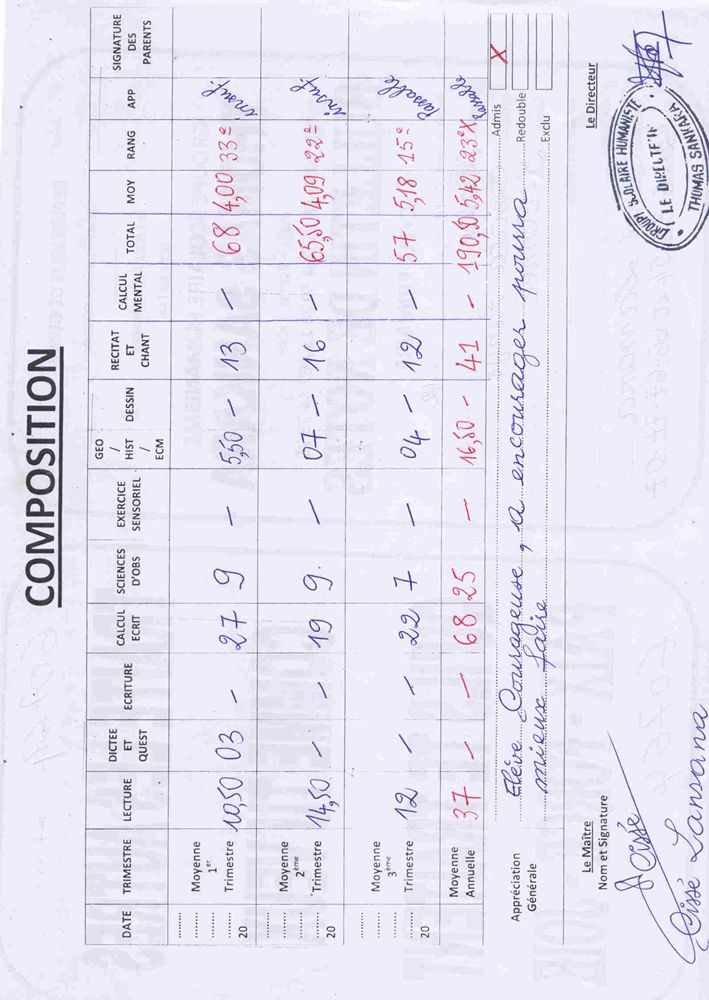 COMPOSITION
DATE TRIMESTRE LECTURE DICTEE ET QUEST ECRITURE CALCUL ECRIT SCIENCES D'OBS EXERCICE SENSORIEL GEO / HIST / ECM DESSIN RECITAT ET CHANT CALCUL MENTAL TOTAL MOY RANG APP SIGNATURE DES PARENTS
........ ........ 20 Moyenne 1er Trimestre 10,50 03 – 27 9 – 5,50 – 13 – 68 4,00 33e insuf.
........ ........ 20 Moyenne 2ème Trimestre 14,50 – – 19 9. – 07 – 16 – 65,50 4,09 22e insuf.
........ ........ 20 Moyenne 3ème Trimestre 12 – – 22 7 – 04 – 12 – 57 5,18 15e Passable
Moyenne Annuelle 37 – – 68 25 – 16,50 – 41 – 190,50 5,42 23ex Passable
Appréciation Générale
Elève Courageuse, à encourager pourra
mieux faire
Admis X
Redouble
Exclu
Le Maître
Nom et Signature
Cissé
Cissé Lansana
Le Directeur
GROUPE SCOLAIRE HUMANISTE
LE DIRECTEUR
THOMAS SANKARA